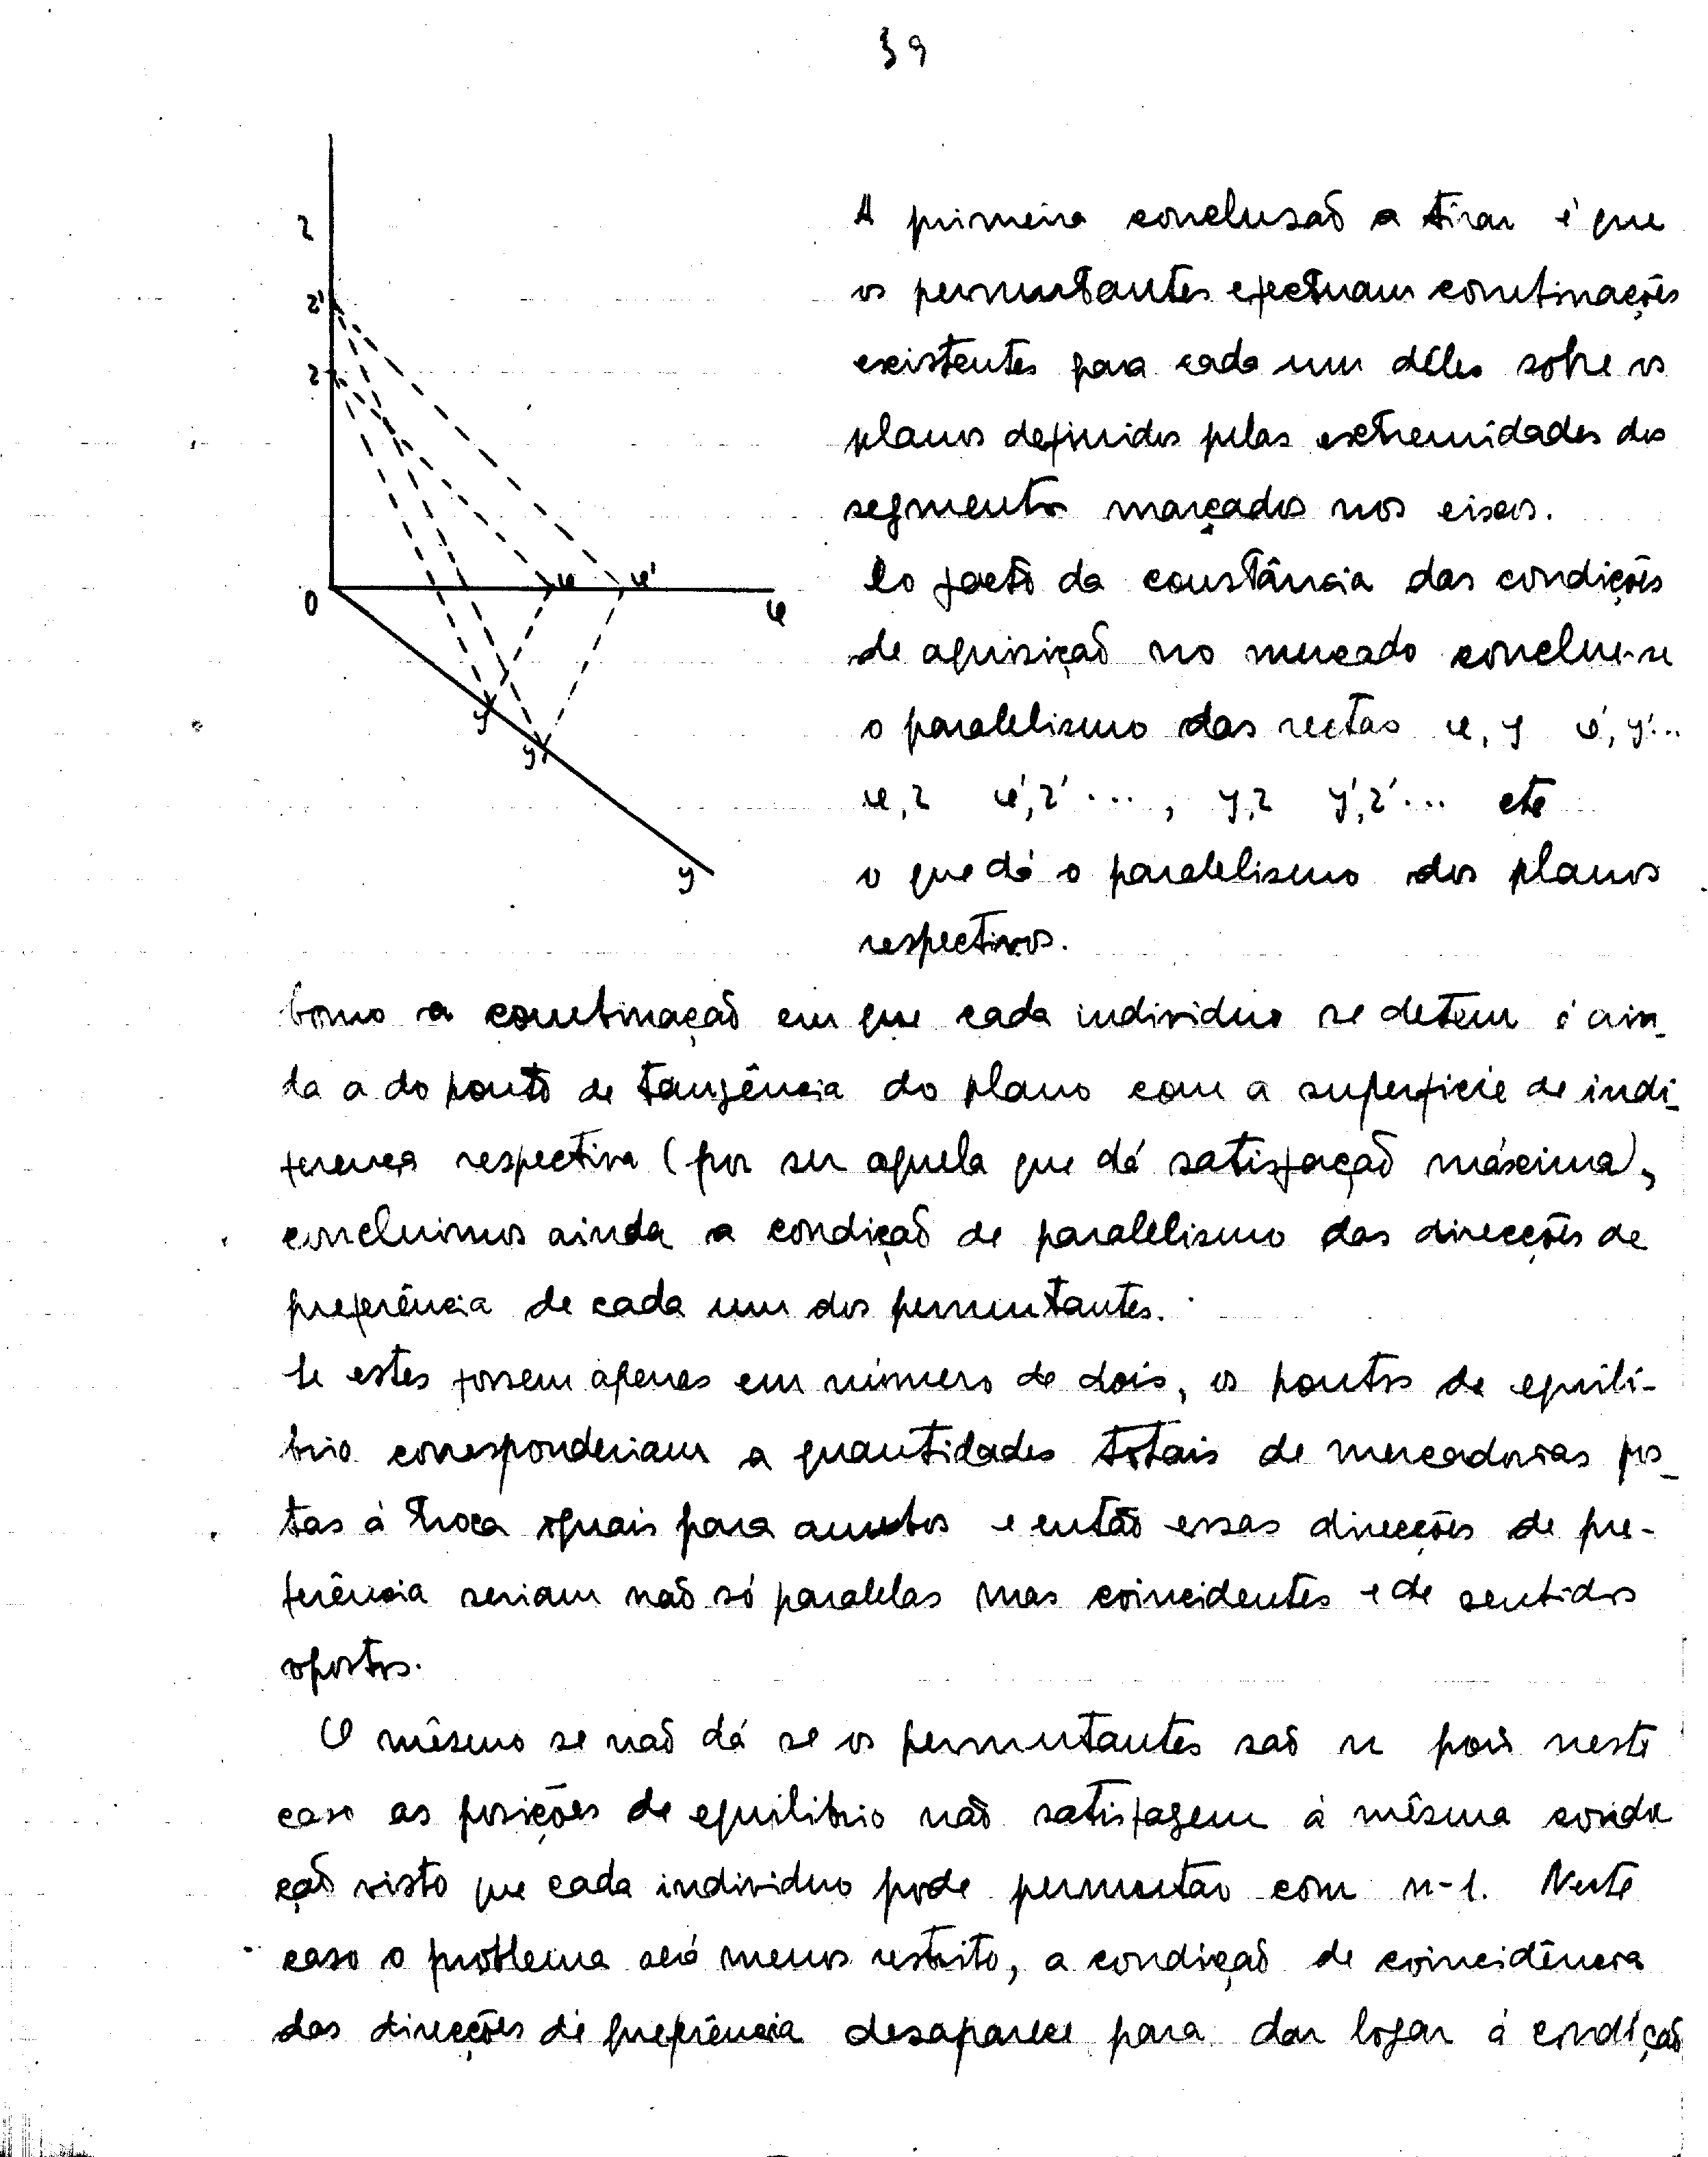 39
z
z'
z
0
x
x'
x
y
y'
y
A primeira conclusaõ a tirar é que
os permutantes efectuam combinações
existentes para cada um dêles sobre os
planos definidos pelas extremidades dos
segmentos marçados nos eixos.
Do facto da constância das condições
de aquisiçaõ no mercado conclue-se
o paralelismo das rectas x, y x', y'...
x, z x', z' ..., y, z y', z' ... etc
o que dá o paralelismo dos planos
respectivos.
Como a combinaçaõ em que cada individuo se detem é ain-
da a do ponto de tangência do plano com a superficie de indi-
ferença respectiva (por ser aquela que dá satisfaçaõ máxima),
concluimos ainda a condiçaõ de paralelismo das direcções de
preferência de cada um dos permutantes.
Se estes fossem apenas em número de dois, os pontos de equili-
brio corresponderiam a quantidades totais de mercadorias pos-
tas á troca iguais para ambos e então essas direcções de pre-
ferência seriam naõ só paralelas mas coincidentes e de sentidos
opostos.
O mêsmo se naõ dá se os permutantes saõ n pois neste
caso as posições de equilibrio naõ satisfazem á mêsma condi
çaõ visto que cada individuo pode permutar com n-1. Neste
caso o problema será menos restrito, a condiçaõ de coincidência
das direcções de preferência desaparece para dar logar á condiçaõ